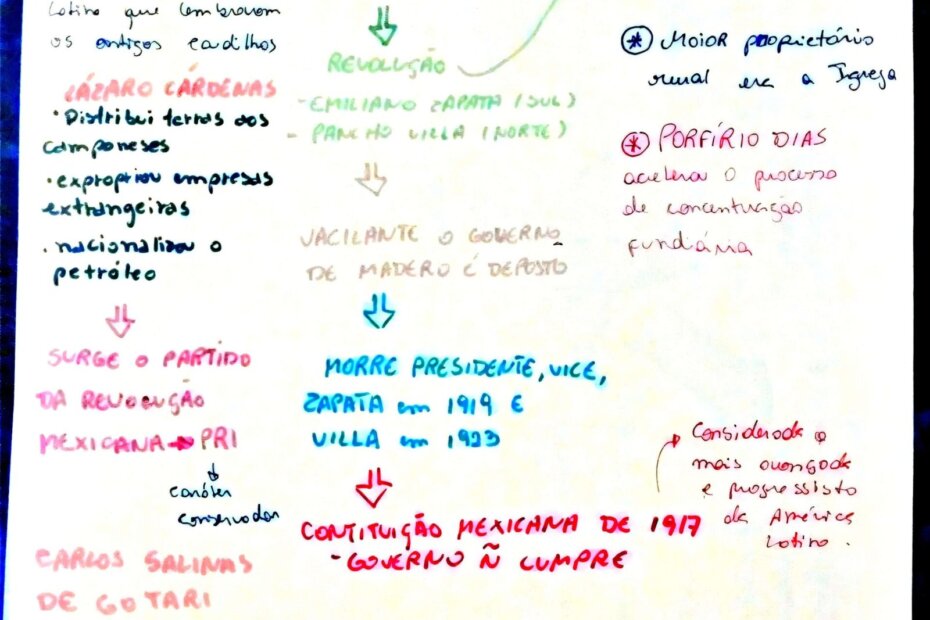 Latino que lembravam
os antigos caudilhos
LÁZARO CÁRDENAS
• Distribui terras aos
camponeses
• expropriou empresas
extrangeiras
• nacionalizou o
petróleo
SURGE O PARTIDO
DA REVOLUÇÃO
MEXICANA → PRI
caráter
conservador
CARLOS SALINAS
DE GOTARI
REVOLUÇÃO
- EMILIANO ZAPATA (SUL)
- PANCHO VILLA (NORTE)
VACILANTE O GOVERNO
DE MADERO É DEPOSTO
MORRE PRESIDENTE, VICE,
ZAPATA em 1919 E
VILLA em 1923
CONTITUIÇÃO MEXICANA DE 1917
- GOVERNO Ñ CUMPRE
* Maior proprietário
rural era a Igreja
* PORFÍRIO DIAS
acelera o processo
de concentração
fundiária
Considerada a
mais avançada
e progressista
da América
Latina.